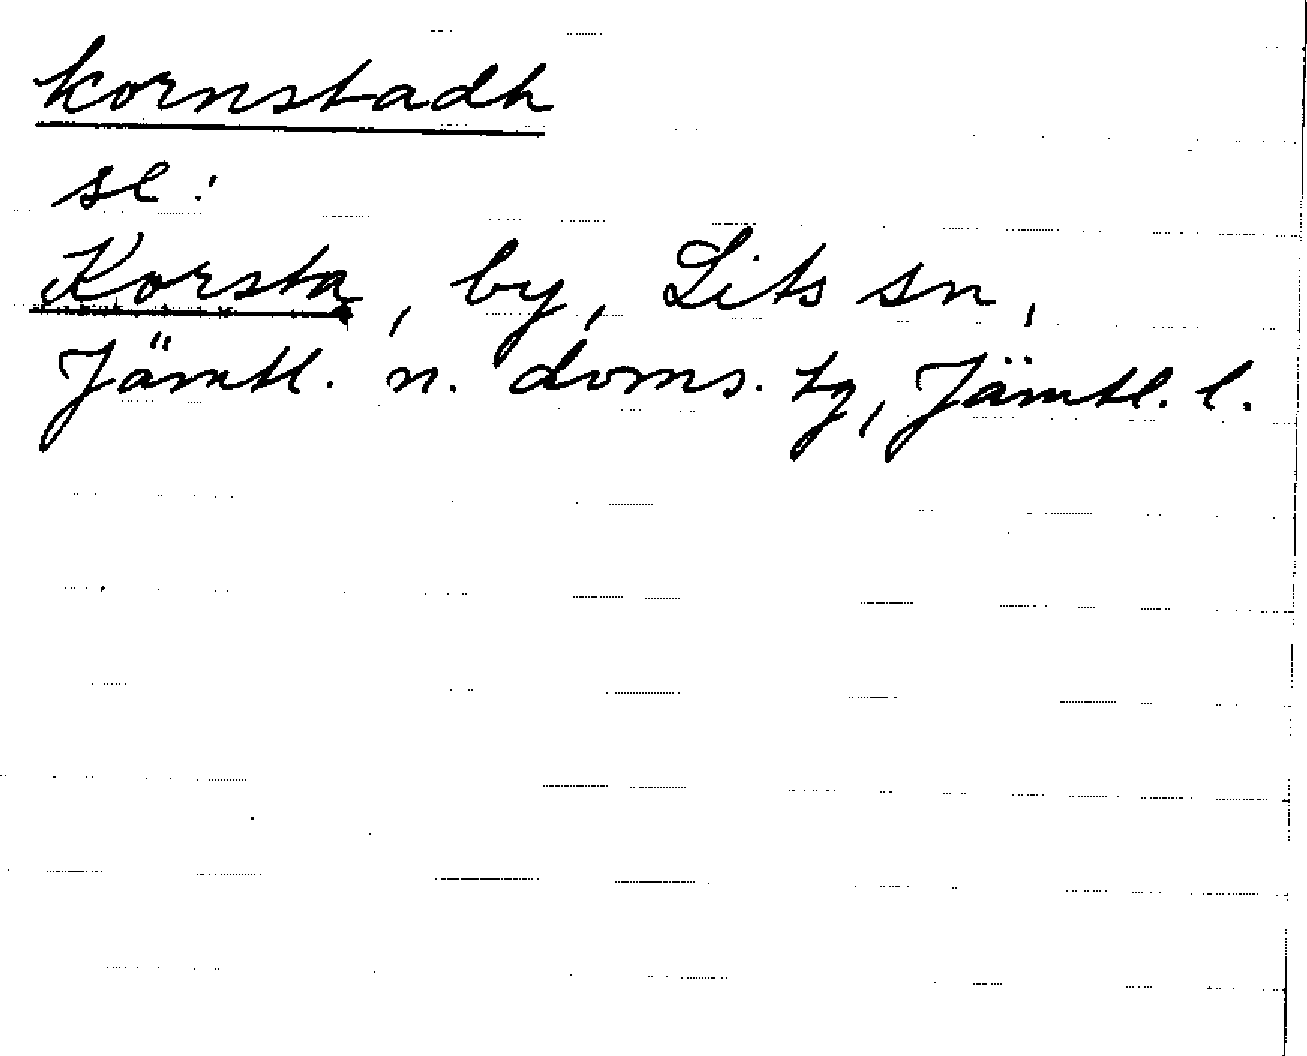 kornstadh
se:
Korsta, by, Lits sn,
Jämtl. n. doms. tg, Jämtl. l.